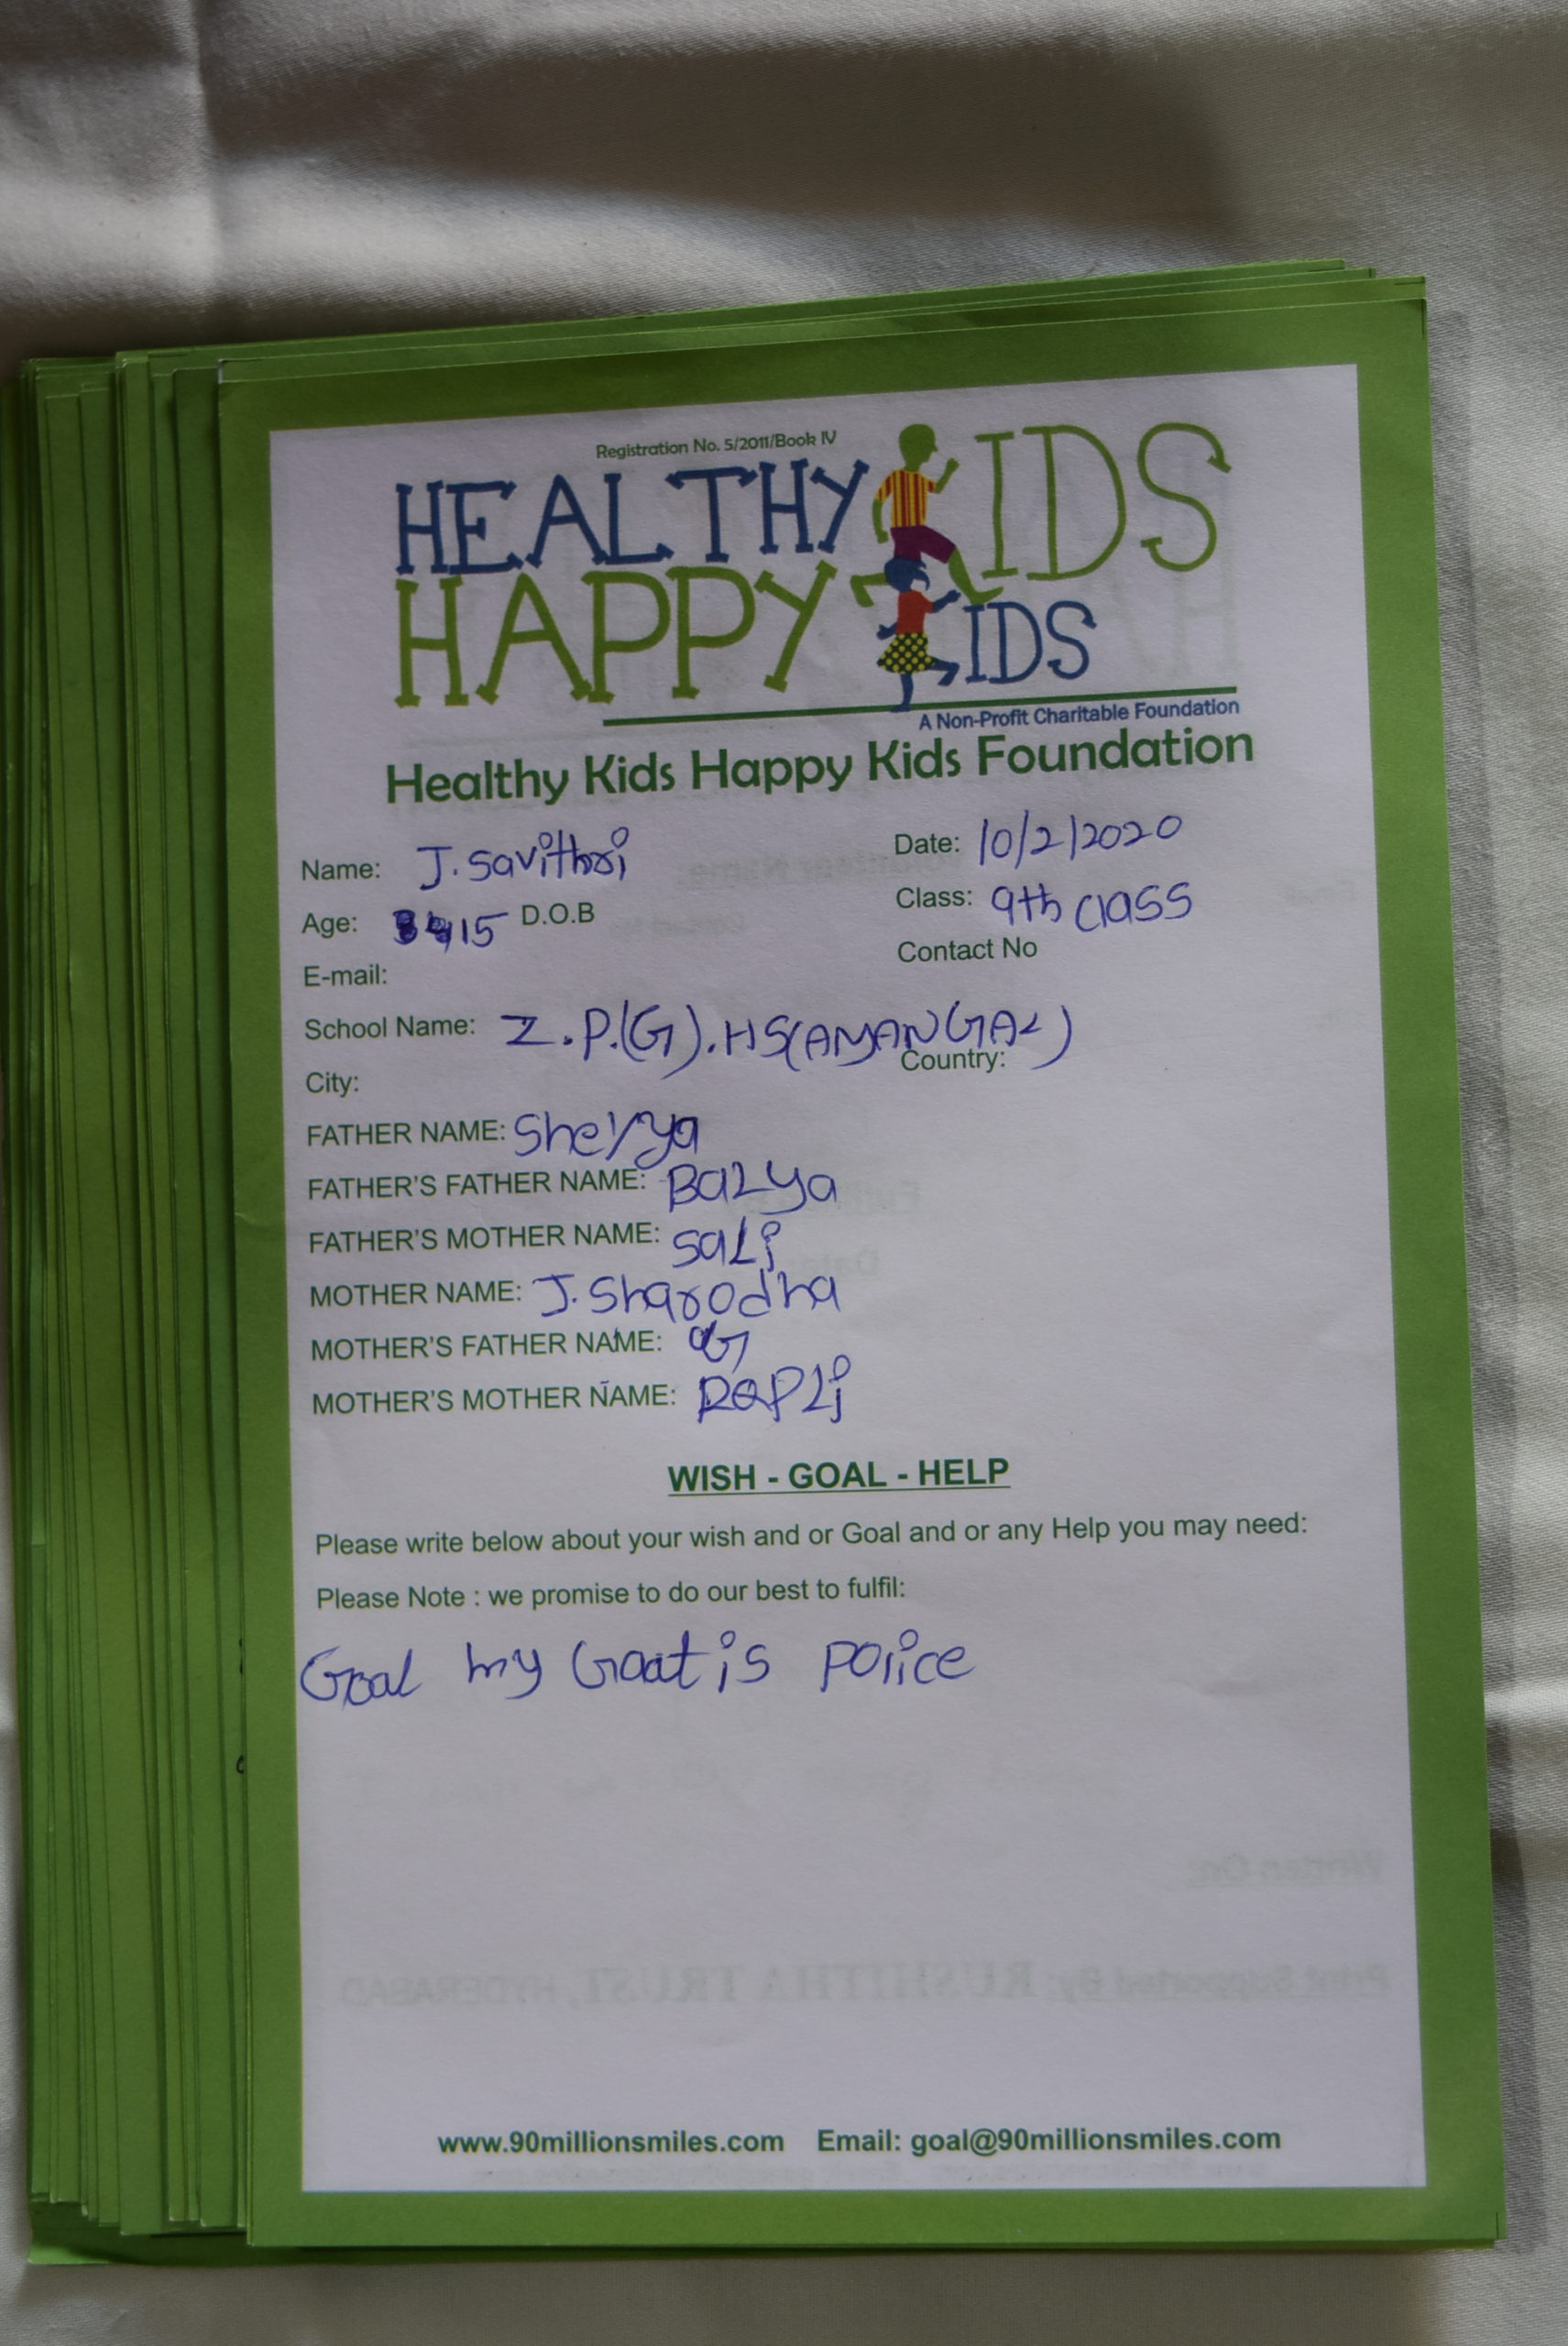 Registration No. 5/2011/Book IV
HEALTHY KIDS
HAPPY KIDS
A Non-Profit Charitable Foundation
Healthy Kids Happy Kids Foundation
Name: J. Savithri Date: 10/2/2020
Age: 15 D.O.B Class: 9th class
E-mail: Contact No
School Name: Z.P.(G).HS(AMANGAL)
City: Country:
FATHER NAME: Sherya
FATHER'S FATHER NAME: Balya
FATHER'S MOTHER NAME: sali
MOTHER NAME: J. Sharodha
MOTHER'S FATHER NAME:
MOTHER'S MOTHER NAME:
WISH - GOAL - HELP
Please write below about your wish and or Goal and or any Help you may need:
Please Note : we promise to do our best to fulfil:
Goal my Goat is police
Written On:
Print Supported By: RUSHITHA TRUST, HYDERABAD
www.90millionsmiles.com Email: goal@90millionsmiles.com